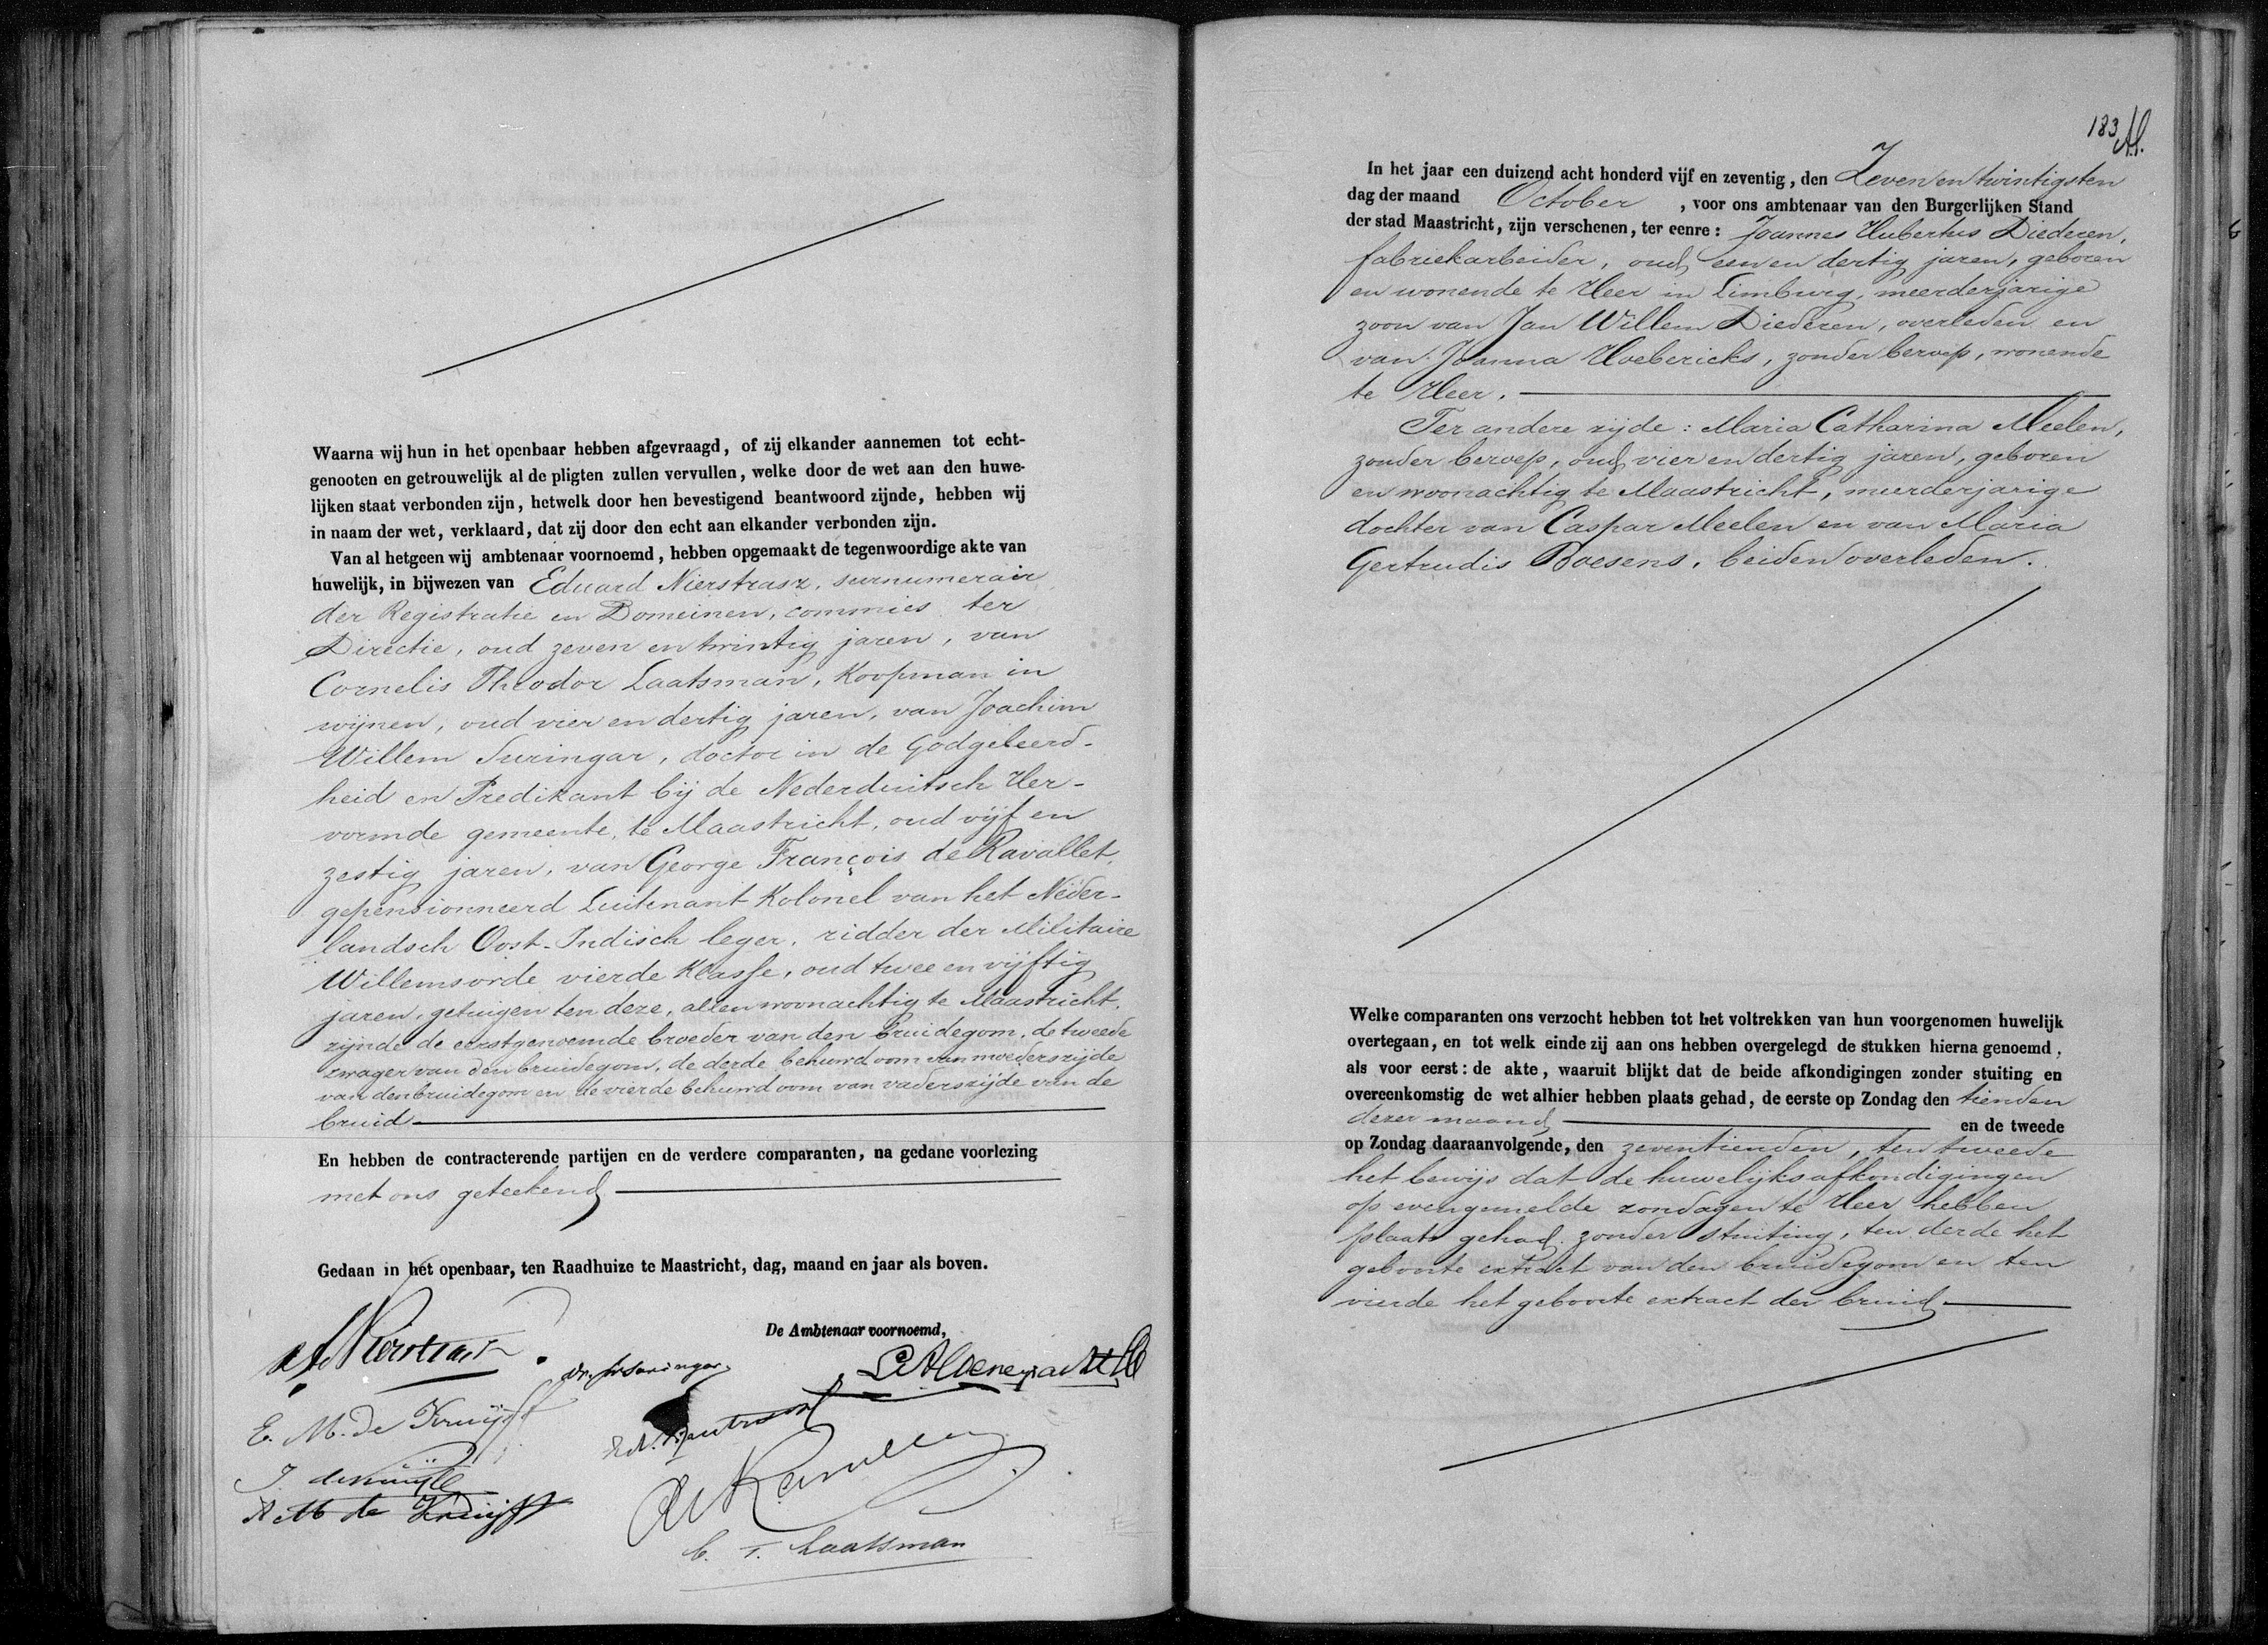 Waarna wij hun in het openbaar hebben afgevraagd, of zij elkander aannemen tot echt-
genooten en getrouwelijk al de pligten zullen vervullen, welke door de wet aan den huwe-
lijken staat verbonden zijn, hetwelk door hen bevestigend beantwoord zijnde, hebben wij
in naam der wet, verklaard, dat zij door den echt aan elkander verbonden zijn.
Van al hetgeen wij ambtenaar voornoemd, hebben opgemaakt de tegenwoordige akte van
huwelijk, in bijwezen van Eduard Nierstrasz, surnumerair
der Registratie en Domeinen, commies ter
Directie, oud zeven en twintig jaren, van
Cornelis Theodor Laatsman, Koopman in
wijnen, oud vier en dertig jaren, van Joachim
Willem Suringar, doctor in de Godgeleerd-
heid en Predikant bij de Nederduitsch Her-
vormde gemeente, te Maastricht, oud vijf en
zestig jaren, van George François de Ravallet,
gepensionneerd Luitenant Kolonel van het Neder-
landsch Oost-Indisch leger, ridder der Militaire
Willemsorde vierde Klasse, oud twee en vijftig
jaren, getuigen ten deze, allen woonachtig te Maastricht,
zijnde de eerstgenoemde broeder van den bruidegom, de tweede
zwager van den bruidegom, de derde behuwd oom van moederszijde
van den bruidegom en de vierde behuwd oom van vaderszijde van de
bruid
En hebben de contracterende partijen en de verdere comparanten, na gedane voorlezing
met ons geteekend
Gedaan in het openbaar, ten Raadhuize te Maastricht, dag, maand en jaar als boven.
De Ambtenaar voornoemd,
Nierstrasz
Dr. Suringar
E. M. de Kruyff
de Kruyff
C. T. Laatsman
183
In het jaar een duizend acht honderd vijf en zeventig, den Zeven en twintigsten
dag der maand October, voor ons ambtenaar van den Burgerlijken Stand
der stad Maastricht, zijn verschenen, ter eenre: Joannes Hubertus Diederen,
fabriekarbeider, oud een en dertig jaren, geboren
en wonende te Heer in Limburg, meerderjarige
zoon van Jan Willem Diederen, overleden en
van Joanna Hoebericks, zonder beroep, wonende
te Heer.
Ter andere zijde: Maria Catharina Meelen,
zonder beroep, oud vier en dertig jaren, geboren
en woonachtig te Maastricht, meerderjarige
dochter van Caspar Meelen en van Maria
Gertrudis Boesens, beiden overleden.
Welke comparanten ons verzocht hebben tot het voltrekken van hun voorgenomen huwelijk
overtegaan, en tot welk einde zij aan ons hebben overgelegd de stukken hierna genoemd,
als voor eerst: de akte, waaruit blijkt dat de beide afkondigingen zonder stuiting en
overeenkomstig de wet alhier hebben plaats gehad, de eerste op Zondag den tienden
dezer maand en de tweede
op Zondag daaraanvolgende, den zeventienden, ten tweede
het bewijs dat de huwelijksafkondigingen
op evengemelde zondagen te Heer hebben
plaats gehad zonder stuiting, ten derde het
geboorte extract van den bruidegom en ten
vierde het geboorte extract der bruid